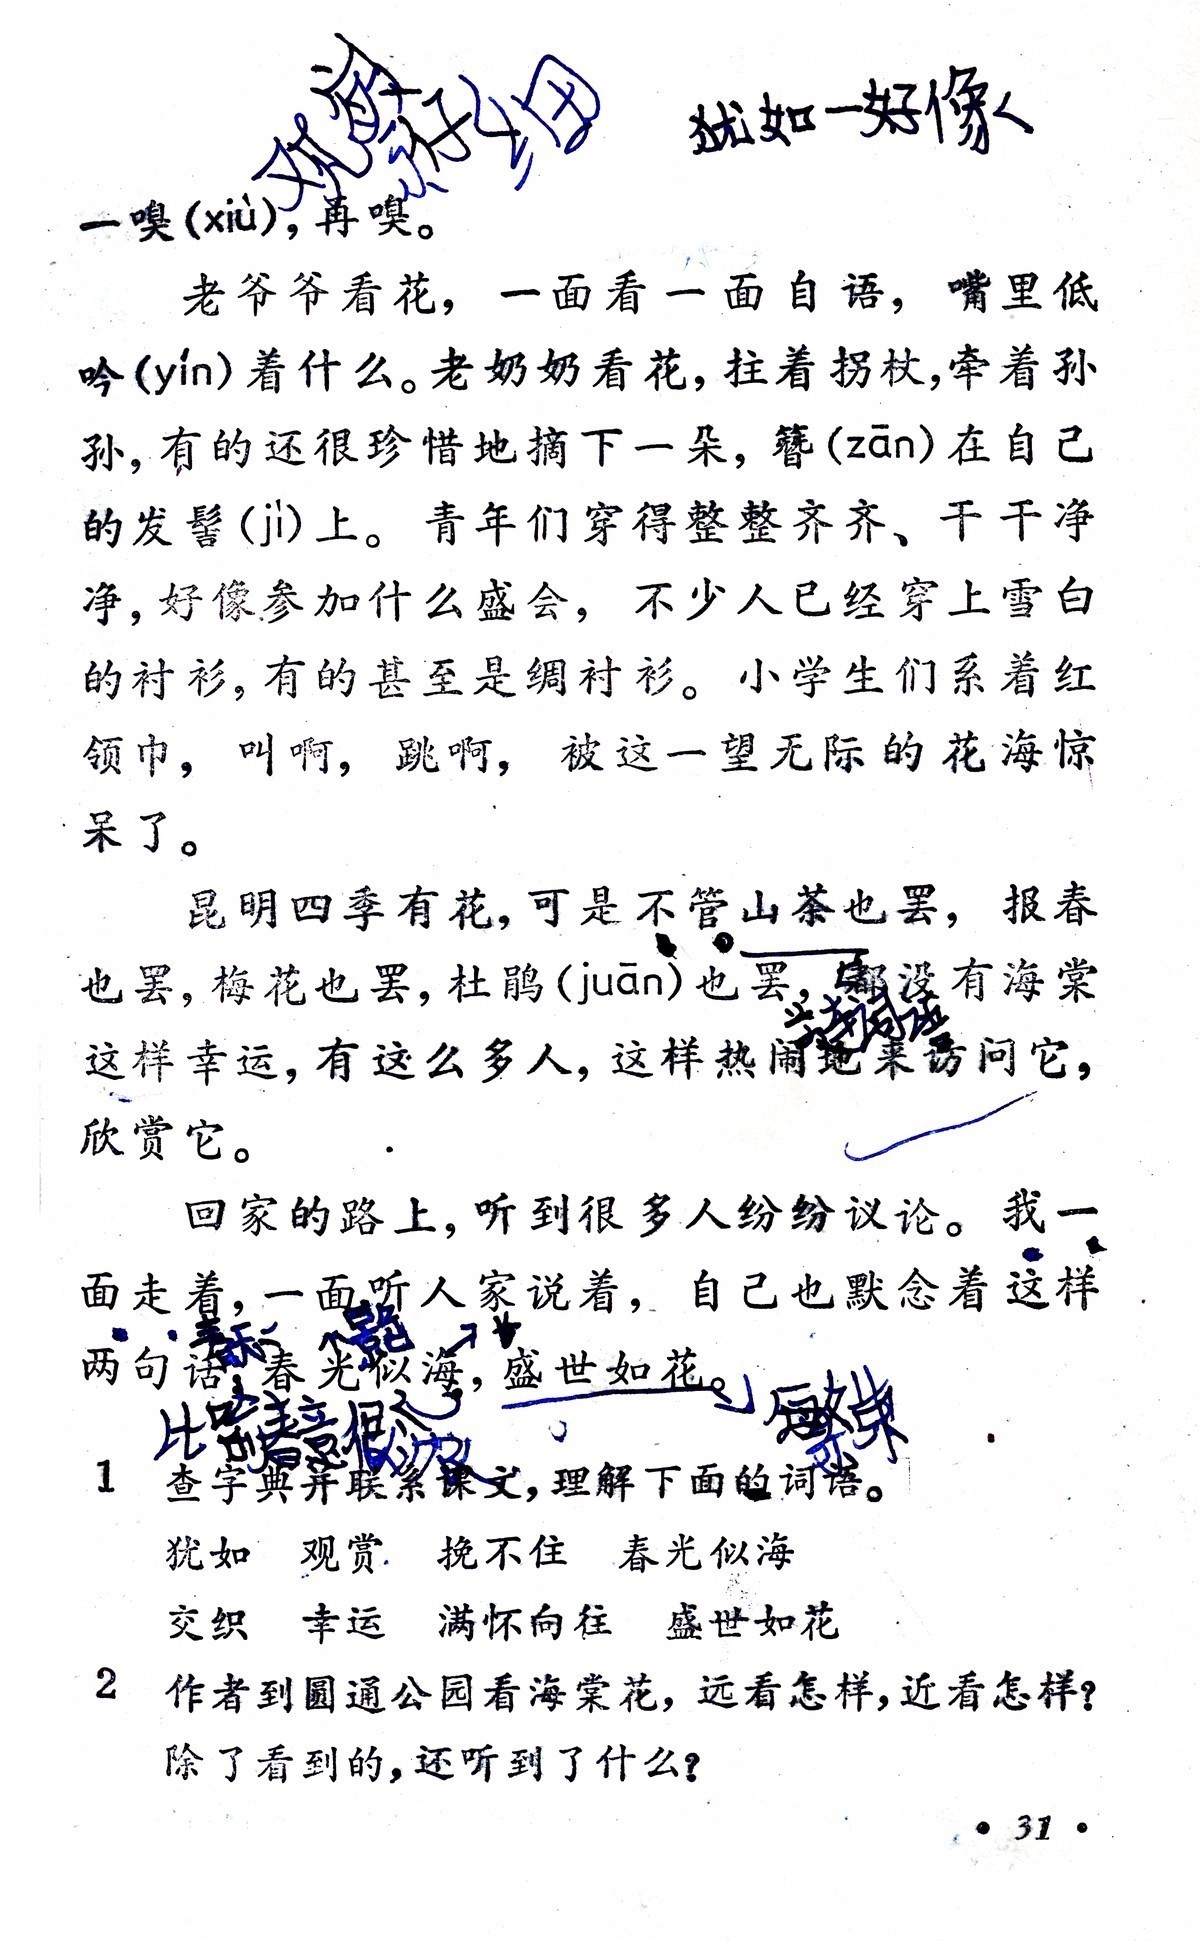 犹如一好像
一嗅(xiù)，再嗅。
老爷爷看花，一面看一面自语，嘴里低
吟(yín)着什么。老奶奶看花，拄着拐杖，牵着孙
孙，有的还很珍惜地摘下一朵，簪(zān)在自己
的发髻(jì)上。青年们穿得整整齐齐、干干净
净，好像参加什么盛会，不少人已经穿上雪白
的衬衫，有的甚至是绸衬衫。小学生们系着红
领巾，叫啊，跳啊，被这一望无际的花海惊
呆了。
昆明四季有花，可是不管山茶也罢，报春
也罢，梅花也罢，杜鹃(juān)也罢，都没有海棠
这样幸运，有这么多人，这样热闹地来访问它，
欣赏它。
回家的路上，听到很多人纷纷议论。我一
面走着，一面听人家说着，自己也默念着这样
两句话，春光似海，盛世如花。
1 查字典并联系课文，理解下面的词语。
犹如 观赏 挽不住 春光似海
交织 幸运 满怀向往 盛世如花
2 作者到圆通公园看海棠花，远看怎样，近看怎样？
除了看到的，还听到了什么？
• 31 •